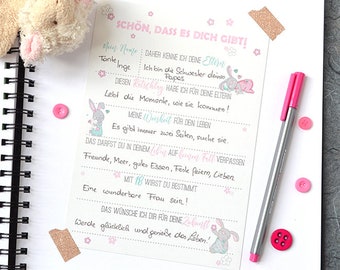 SCHÖN, DASS ES DICH GIBT!
Mein Name: DAHER KENNE ICH DEINE Eltern
Tante Inge Ich bin die Schwester deines Papas
DIESEN Ratschlag HABE ICH FÜR DEINE ELTERN
Lebt die Momente, wie sie kommen!
MEINE Weisheit FÜR DEIN LEBEN
Es gibt immer zwei Seiten, suche sie.
DAS DARFST DU IN DEINEM Leben AUF keinen Fall VERPASSEN
Freunde, Meer, gutes Essen, Feste feiern, Lieben
MIT 18 WIRST DU BESTIMMT
Eine wunderbare Frau sein!
DAS WÜNSCHE ICH DIR FÜR DEINE Zukunft
Werde glücklich und genieße dein Leben!